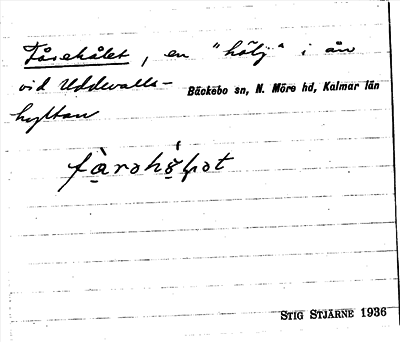 Fårehålet, en "hölj" i ån
vid Uddevalls-
Bäckebo sn, N. Möre hd, Kalmar län
hyttan
STIG STJÄRNE 1936